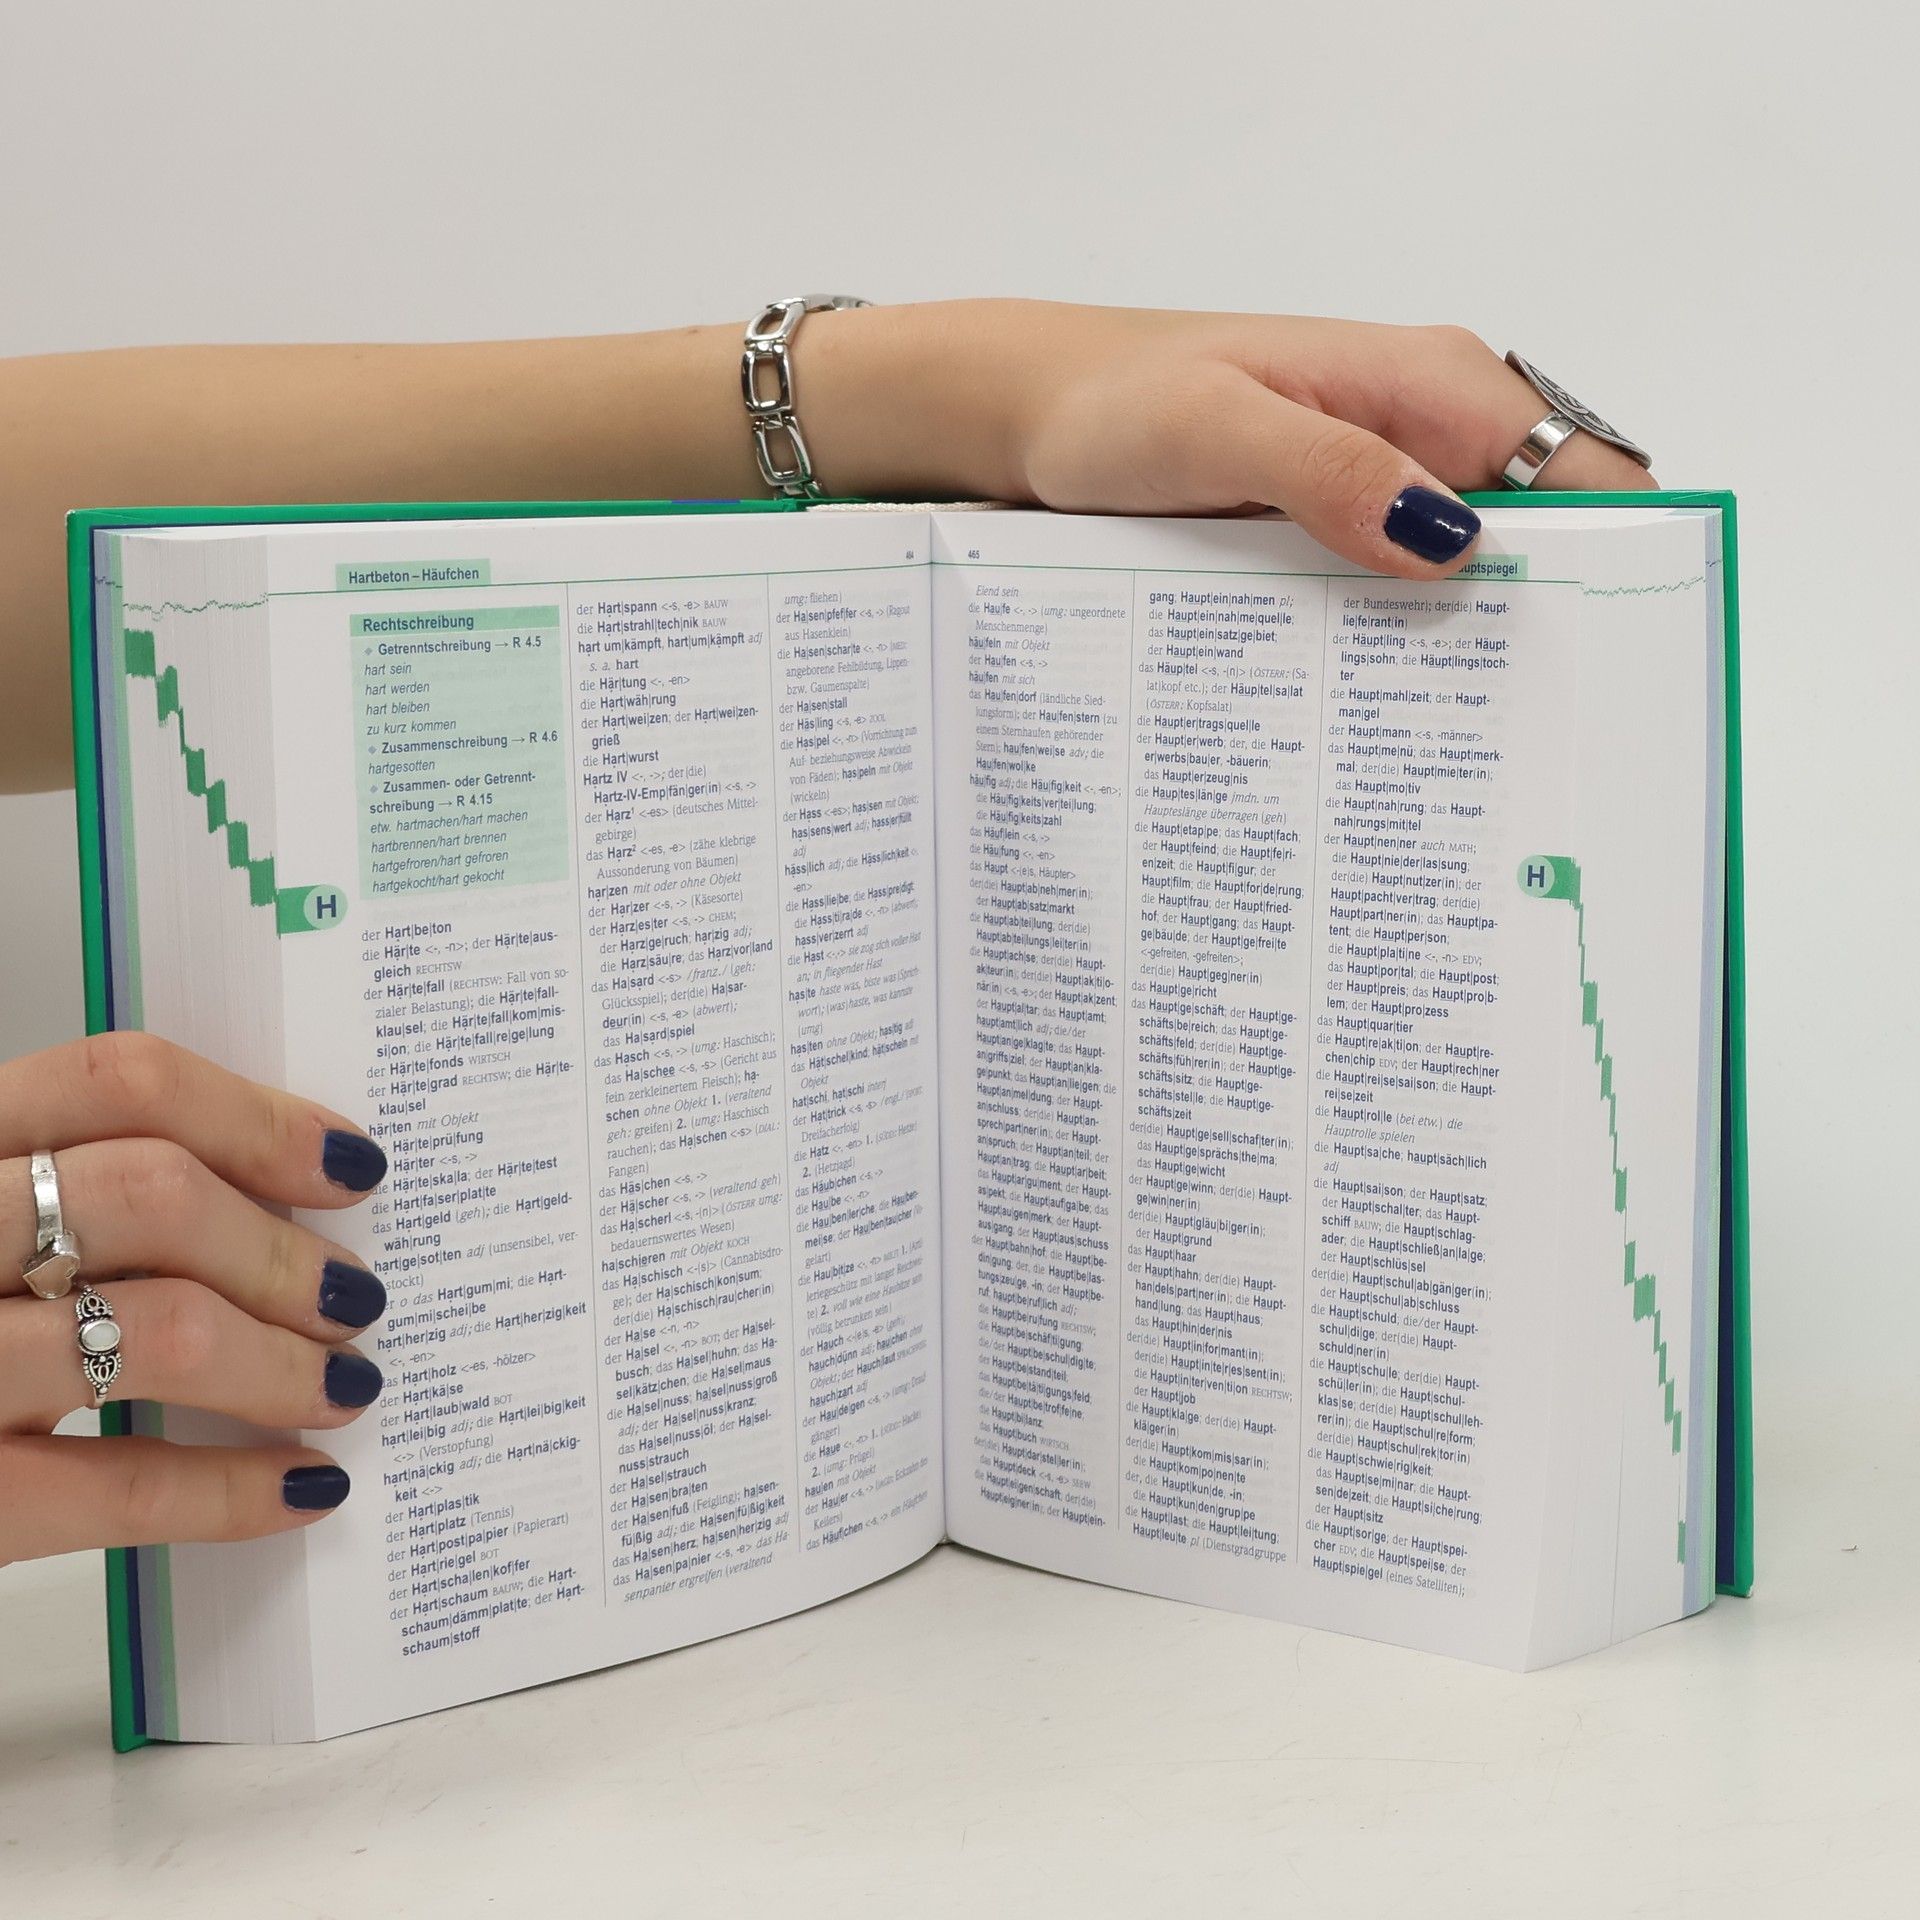 Hartbeton – Häufchen
464
Rechtschreibung
◆ Getrenntschreibung → R 4.5
hart sein
hart werden
hart bleiben
zu kurz kommen
◆ Zusammenschreibung → R 4.6
hartgesotten
◆ Zusammen- oder Getrennt-
schreibung → R 4.15
etw. hartmachen/hart machen
hartbrennen/hart brennen
hartgefroren/hart gefroren
hartgekocht/hart gekocht
H
der Hart|be|ton
die Här|te <-, -n>; der Här|te|aus-
gleich RECHTSW
der Här|te|fall (RECHTSW: Fall von so-
zialer Belastung); die Här|te|fall-
klau|sel; die Här|te|fall|kom|mis-
si|on; die Här|te|fall|re|ge|lung
der Här|te|fonds WIRTSCH
der Här|te|grad RECHTSW; die Här|te-
klau|sel
här|ten mit Objekt
Här|te|prü|fung
Här|ter <-s, ->
Här|te|ska|la; der Här|te|test
die Hart|fa|ser|plat|te
das Hart|geld (geh); die Hart|geld-
wäh|rung
hart|ge|sot|ten adj (unsensibel, ver-
stockt)
o das Hart|gum|mi; die Hart-
gum|mi|schei|be
hart|her|zig adj; die Hart|her|zig|keit
<-, -en>
das Hart|holz <-es, -hölzer>
der Hart|kä|se
der Hart|laub|wald BOT
hart|lei|big adj; die Hart|lei|big|keit
<-> (Verstopfung)
hart|nä|ckig adj; die Hart|nä|ckig-
keit <->
der Hart|plas|tik
der Hart|platz (Tennis)
der Hart|post|pa|pier (Papierart)
der Hart|rie|gel BOT
der Hart|scha|len|kof|fer
der Hart|schaum BAUW; die Hart-
schaum|dämm|plat|te; der Hart-
schaum|stoff
der Hart|spann <-s, -e> BAUW
die Hart|strahl|tech|nik BAUW
hart um|kämpft, hart|um|kämpft adj
s. a. hart
die Här|tung <-, -en>
die Hart|wäh|rung
der Hart|wei|zen; der Hart|wei|zen-
grieß
die Hart|wurst
Hartz IV <-, ->; der|(die)
Hartz-IV-Emp|fän|ger|(in) <-s, ->
der Harz¹ <-es> (deutsches Mittel-
gebirge)
das Harz² <-es, -e> (zähe klebrige
Aussonderung von Bäumen)
har|zen mit oder ohne Objekt
der Har|zer <-s, -> (Käsesorte)
der Harz|es|ter <-s, -> CHEM;
der Harz|ge|ruch; har|zig adj;
die Harz|säu|re; das Harz|vor|land
das Ha|sard <-s> /franz./ (geh:
Glücksspiel); der(die) Ha|sar-
deur(in) <-s, -e> (abwert);
das Ha|sard|spiel
das Hasch <-s, -> (umg: Haschisch);
das Ha|schee <-s, -s> (Gericht aus
fein zerkleinertem Fleisch); ha-
schen ohne Objekt 1. (veraltend
geh: greifen) 2. (umg: Haschisch
rauchen); das Ha|schen <-s> (DIAL:
Fangen)
das Häs|chen <-s, ->
der Hä|scher <-s, -> (veraltend geh)
das Ha|scherl <-s, -(n)> (ÖSTERR umg:
bedauernswertes Wesen)
ha|schie|ren mit Objekt KOCH
das Ha|schisch <-(s)> (Cannabisdro-
ge); der Ha|schisch|kon|sum;
der(die) Ha|schisch|rau|cher(in)
der Ha|se <-n, -n>
der Ha|sel <-, -n> BOT; der Ha|sel-
busch; das Ha|sel|huhn; das Ha-
sel|kätz|chen; die Ha|sel|maus
die Ha|sel|nuss; ha|sel|nuss|groß
adj; der Ha|sel|nuss|kranz;
das Ha|sel|nuss|öl; der Ha|sel-
nuss|strauch
der Ha|sel|strauch
der Ha|sen|bra|ten
der Ha|sen|fuß (Feigling); ha|sen-
fü|ßig adj; die Ha|sen|fü|ßig|keit
das Ha|sen|herz; ha|sen|her|zig adj
das Ha|sen|pa|nier <-s, -e> das Ha-
senpanier ergreifen (veraltend
umg: fliehen)
der Ha|sen|pfef|fer <-s, -> (Ragout
aus Hasenklein)
die Ha|sen|schar|te <-, -n> (MED:
angeborene Fehlbildung, Lippen-
bzw. Gaumenspalte)
der Ha|sen|stall
der Häs|ling <-s, -e> ZOOL
die Has|pel <-, -n> (Vorrichtung zum
Auf- beziehungsweise Abwickeln
von Fäden); has|peln mit Objekt
(wickeln)
der Hass <-es>; has|sen mit Objekt;
has|sens|wert adj; hass|er|füllt
adj
häss|lich adj; die Häss|lich|keit <-,
-en>
die Hass|lie|be; die Hass|pre|digt
die Hass|ti|ra|de <-, -n> (abwert);
hass|ver|zerrt adj
die Hast <-,-> sie zog sich voller Hast
an; in fliegender Hast
has|te haste was, biste was (Sprich-
wort); (was) haste, was kannste
(umg)
has|ten ohne Objekt; has|tig adj
das Hät|schel|kind; hät|scheln mit
Objekt
hat|schi, hat|schi interj
der Hat|trick <-s, -s> /engl./ (SPORT:
Dreifacherfolg)
die Hatz <-, -en> 1. (SÜDD: Hetze)
2. (Hetzjagd)
das Häub|chen <-s, ->
die Hau|be <-, -n>
die Hau|ben|ler|che; die Hau|ben-
mei|se; der Hau|ben|tau|cher (Vo-
gelart)
die Hau|bit|ze <-, -n> MILIT 1. (Artil-
leriegeschütz mit langer Reichwei-
te) 2. voll wie eine Haubitze sein
(völlig betrunken sein)
der Hauch <-(e)s, -e> (geh);
hauch|dünn adj; hau|chen ohne
Objekt; der Hauch|laut SPRACHWISS
hauch|zart adj
der Hau|de|gen <-s, -> (umg: Drauf-
gänger)
die Haue <-, -n> 1. (SÜDD: Hacke)
2. (umg: Prügel)
hau|en mit Objekt
der Hau|er <-s, ->
Kellers)
das Häuf|chen <-s, -> ein Häufchen
465
Elend sein
die Hau|fe <-, -> (umg: ungeordnete
Menschenmenge)
häu|feln mit Objekt
der Hau|fen <-s, ->
häu|fen mit sich
das Hau|fen|dorf (ländliche Sied-
lungsform); der Hau|fen|stern (zu
einem Sternhaufen gehörender
Stern); hau|fen|wei|se adv; die
Hau|fen|wol|ke
häu|fig adj; die Häu|fig|keit <-, -en>;
die Häu|fig|keits|ver|tei|lung;
die Häu|fig|keits|zahl
das Häuf|lein <-s, ->
die Häu|fung <-, -en>
das Haupt <-(e)s, Häupter>
der(die) Haupt|ab|neh|mer(in);
der Haupt|ab|satz|markt
die Haupt|ab|tei|lung; der(die)
Haupt|ab|tei|lungs|lei|ter(in)
die Haupt|ach|se; der(die) Haupt-
ak|teur(in); der(die) Haupt|ak|ti|o-
när(in) <-s, -e>; der Haupt|ak|zent;
der Haupt|al|tar; das Haupt|amt;
haupt|amt|lich adj; die/der
Haupt|an|ge|klag|te; das Haupt-
an|griffs|ziel; der Haupt|an|kla-
ge|punkt; das Haupt|an|lie|gen; die
Haupt|an|mel|dung; der Haupt-
an|schluss; der(die) Haupt|an-
sprech|part|ner(in); der Haupt-
an|spruch; der Haupt|an|teil; der
Haupt|an|trag; die Haupt|ar|beit;
das Haupt|ar|gu|ment; der Haupt-
as|pekt; die Haupt|auf|ga|be; das
Haupt|au|gen|merk; der Haupt-
aus|gang; der Haupt|aus|schuss
der Haupt|bahn|hof; die Haupt|be-
din|gung; der, die Haupt|be|las-
tungs|zeu|ge, -in; der Haupt|be-
ruf; haupt|be|ruf|lich adj;
die Haupt|be|ru|fung RECHTSW;
die Haupt|be|schäf|ti|gung;
die/der Haupt|be|schul|dig|te;
der Haupt|be|stand|teil;
das Haupt|be|tä|ti|gungs|feld;
die/der Haupt|be|trof|fe|ne;
die Haupt|bi|lanz;
das Haupt|buch WIRTSCH
der(die) Haupt|dar|stel|ler(in);
das Haupt|deck <-s, -e> SEEW
die Haupt|ei|gen|schaft; der(die)
Haupt|eig|ner(in); der Haupt|ein-
gang; Haupt|ein|nah|men pl;
die Haupt|ein|nah|me|quel|le;
das Haupt|ein|satz|ge|biet;
der Haupt|ein|wand
das Häup|tel <-s, -(n)> (ÖSTERR: (Sa-
lat)kopf etc.); der Häup|tel|sa|lat
(ÖSTERR: Kopfsalat)
die Haupt|er|trags|quel|le
der Haupt|er|werb; der, die Haupt-
er|werbs|bau|er, -bäuerin;
das Haupt|er|zeug|nis
die Haup|tes|län|ge jmdn. um
Haupteslänge überragen (geh)
die Haupt|etap|pe; das Haupt|fach;
der Haupt|feind; die Haupt|fe|ri-
en|zeit; die Haupt|fi|gur; der
Haupt|film; die Haupt|for|de|rung;
die Haupt|frau; der Haupt|fried-
hof; der Haupt|gang; das Haupt-
ge|bäu|de; der Haupt|ge|frei|te
<-gefreiten, -gefreiten>;
der(die) Haupt|geg|ner(in)
das Haupt|ge|richt
das Haupt|ge|schäft; der Haupt|ge-
schäfts|be|reich; das Haupt|ge-
schäfts|feld; der(die) Haupt|ge-
schäfts|füh|rer(in); der Haupt|ge-
schäfts|sitz; die Haupt|ge-
schäfts|stel|le; die Haupt|ge-
schäfts|zeit
der(die) Haupt|ge|sell|schaf|ter(in);
das Haupt|ge|sprächs|the|ma;
das Haupt|ge|wicht
der Haupt|ge|winn; der(die) Haupt-
ge|win|ner(in)
der(die) Haupt|gläu|bi|ger(in);
der Haupt|grund
das Haupt|haar
der Haupt|hahn; der(die) Haupt-
han|dels|part|ner(in); die Haupt-
hand|lung; das Haupt|haus;
das Haupt|hin|der|nis
der(die) Haupt|in|for|mant(in);
der(die) Haupt|in|te|res|sent(in);
die Haupt|in|ter|ven|ti|on RECHTSW;
der Haupt|job
die Haupt|kla|ge; der(die) Haupt-
klä|ger(in)
der(die) Haupt|kom|mis|sar(in);
die Haupt|kom|po|nen|te
der, die Haupt|kun|de, -in;
die Haupt|kun|den|grup|pe
die Haupt|last; die Haupt|lei|tung;
Haupt|leu|te pl (Dienstgradgruppe
der Bundeswehr); der(die) Haupt-
lie|fe|rant(in)
der Häupt|ling <-s, -e>; der Häupt-
lings|sohn; die Häupt|lings|toch-
ter
die Haupt|mahl|zeit; der Haupt-
man|gel
der Haupt|mann <-s, -männer>
das Haupt|me|nü; das Haupt|merk-
mal; der(die) Haupt|mie|ter(in);
das Haupt|mo|tiv
die Haupt|nah|rung; das Haupt-
nah|rungs|mit|tel
der Haupt|nen|ner auch MATH;
die Haupt|nie|der|las|sung;
der(die) Haupt|nut|zer(in); der
Haupt|pacht|ver|trag; der(die)
Haupt|part|ner(in); das Haupt|pa-
tent; die Haupt|per|son;
die Haupt|pla|ti|ne <-, -n> EDV;
das Haupt|por|tal; die Haupt|post;
der Haupt|preis; das Haupt|pro|b-
lem; der Haupt|pro|zess
das Haupt|quar|tier
die Haupt|re|ak|ti|on; der Haupt|re-
chen|chip EDV; der Haupt|rech|ner
die Haupt|rei|se|sai|son; die Haupt-
rei|se|zeit
die Haupt|rol|le (bei etw.) die
Hauptrolle spielen
die Haupt|sa|che; haupt|säch|lich
adj
die Haupt|sai|son; der Haupt|satz;
der Haupt|schal|ter; das Haupt-
schiff BAUW; die Haupt|schlag-
ader; die Haupt|schließ|an|la|ge;
der Haupt|schlüs|sel
der(die) Haupt|schul|ab|gän|ger(in);
der Haupt|schul|ab|schluss
die Haupt|schuld; die/der Haupt-
schul|di|ge; der(die) Haupt-
schuld|ner(in)
die Haupt|schu|le; der(die) Haupt-
schü|ler(in); die Haupt|schul-
klas|se; der(die) Haupt|schul|leh-
rer(in); die Haupt|schul|re|form;
der(die) Haupt|schul|rek|tor(in)
die Haupt|schwie|rig|keit;
das Haupt|se|mi|nar; die Haupt-
sen|de|zeit; die Haupt|si|che|rung;
der Haupt|sitz
die Haupt|sor|ge; der Haupt|spei-
cher EDV; die Haupt|spei|se; der
Haupt|spie|gel (eines Satelliten);
H